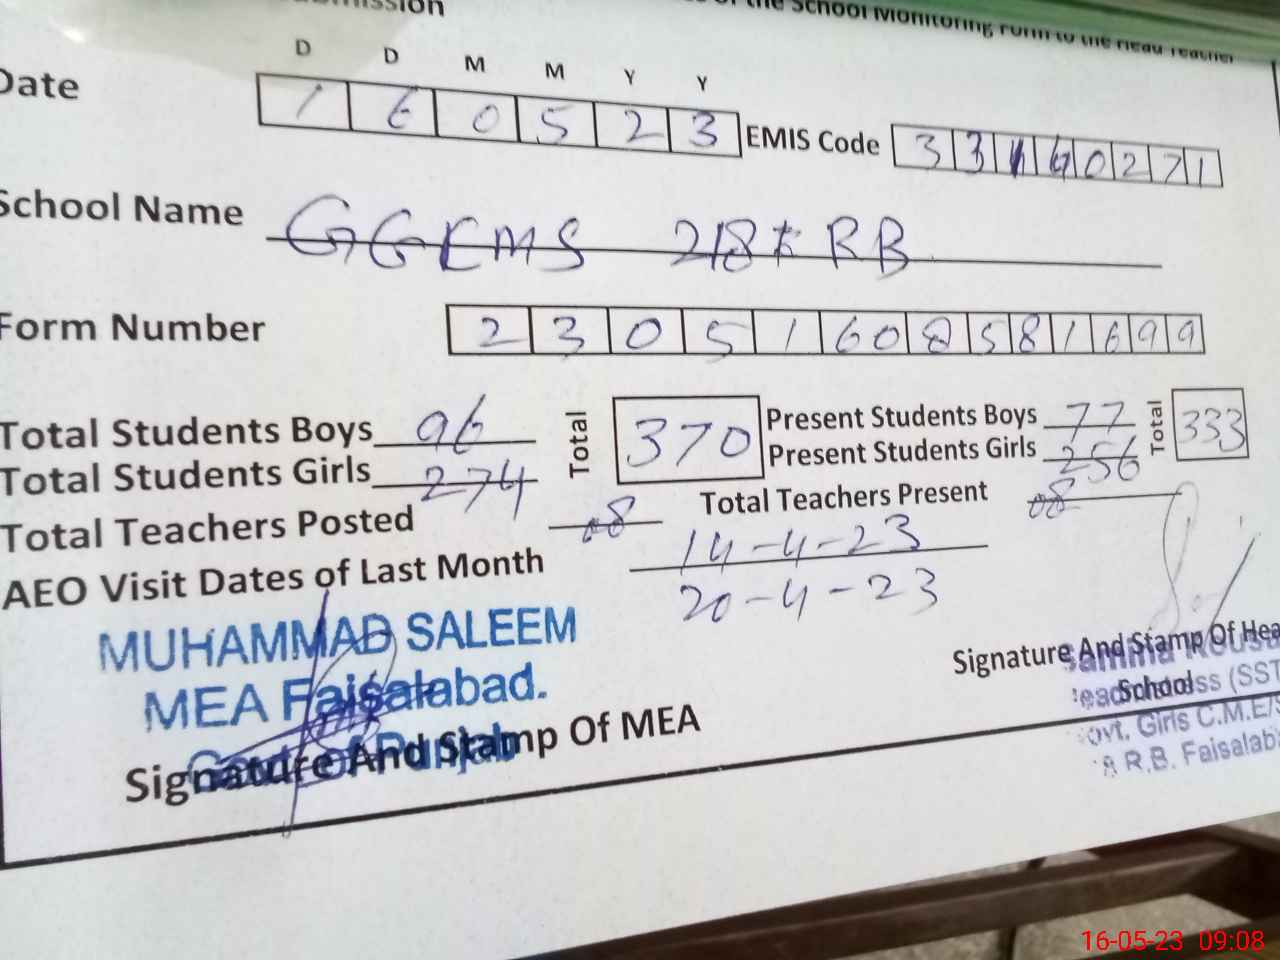 of the School Monitoring Form to the Head Teacher
D D M M Y Y
Date 1 6 0 5 2 3 EMIS Code 3 3 1 1 0 2 7 1
School Name GGEMS 218 RB
Form Number 2 3 0 5 1 6 0 8 5 8 1 6 9 9
Total Students Boys 96 Total 370 Present Students Boys 77 Total 333
Total Students Girls 274 Present Students Girls 256
Total Teachers Posted 08 Total Teachers Present 08
AEO Visit Dates of Last Month 14-4-23
20-4-23
MUHAMMAD SALEEM
MEA Faisalabad.
Govt of Punjab
Signature And Stamp Of MEA
Signature And Stamp Of Hea
School
ss (SST
ovt. Girls C.M.E/S
8 R.B. Faisalaba
16-05-23 09:08